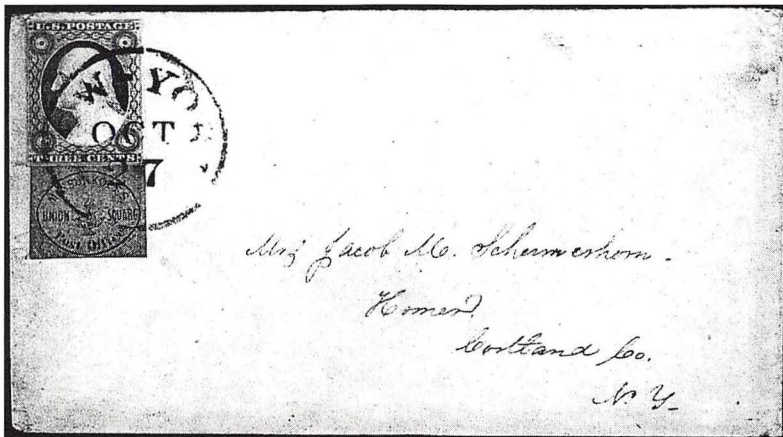 U.S. POSTAGE
THREE CENTS
W YOR
OCT
7
UNION SQUARE
Post Office
Mrs Jacob M. Schermerhorn.
Homer
Cortland Co.
N. Y.